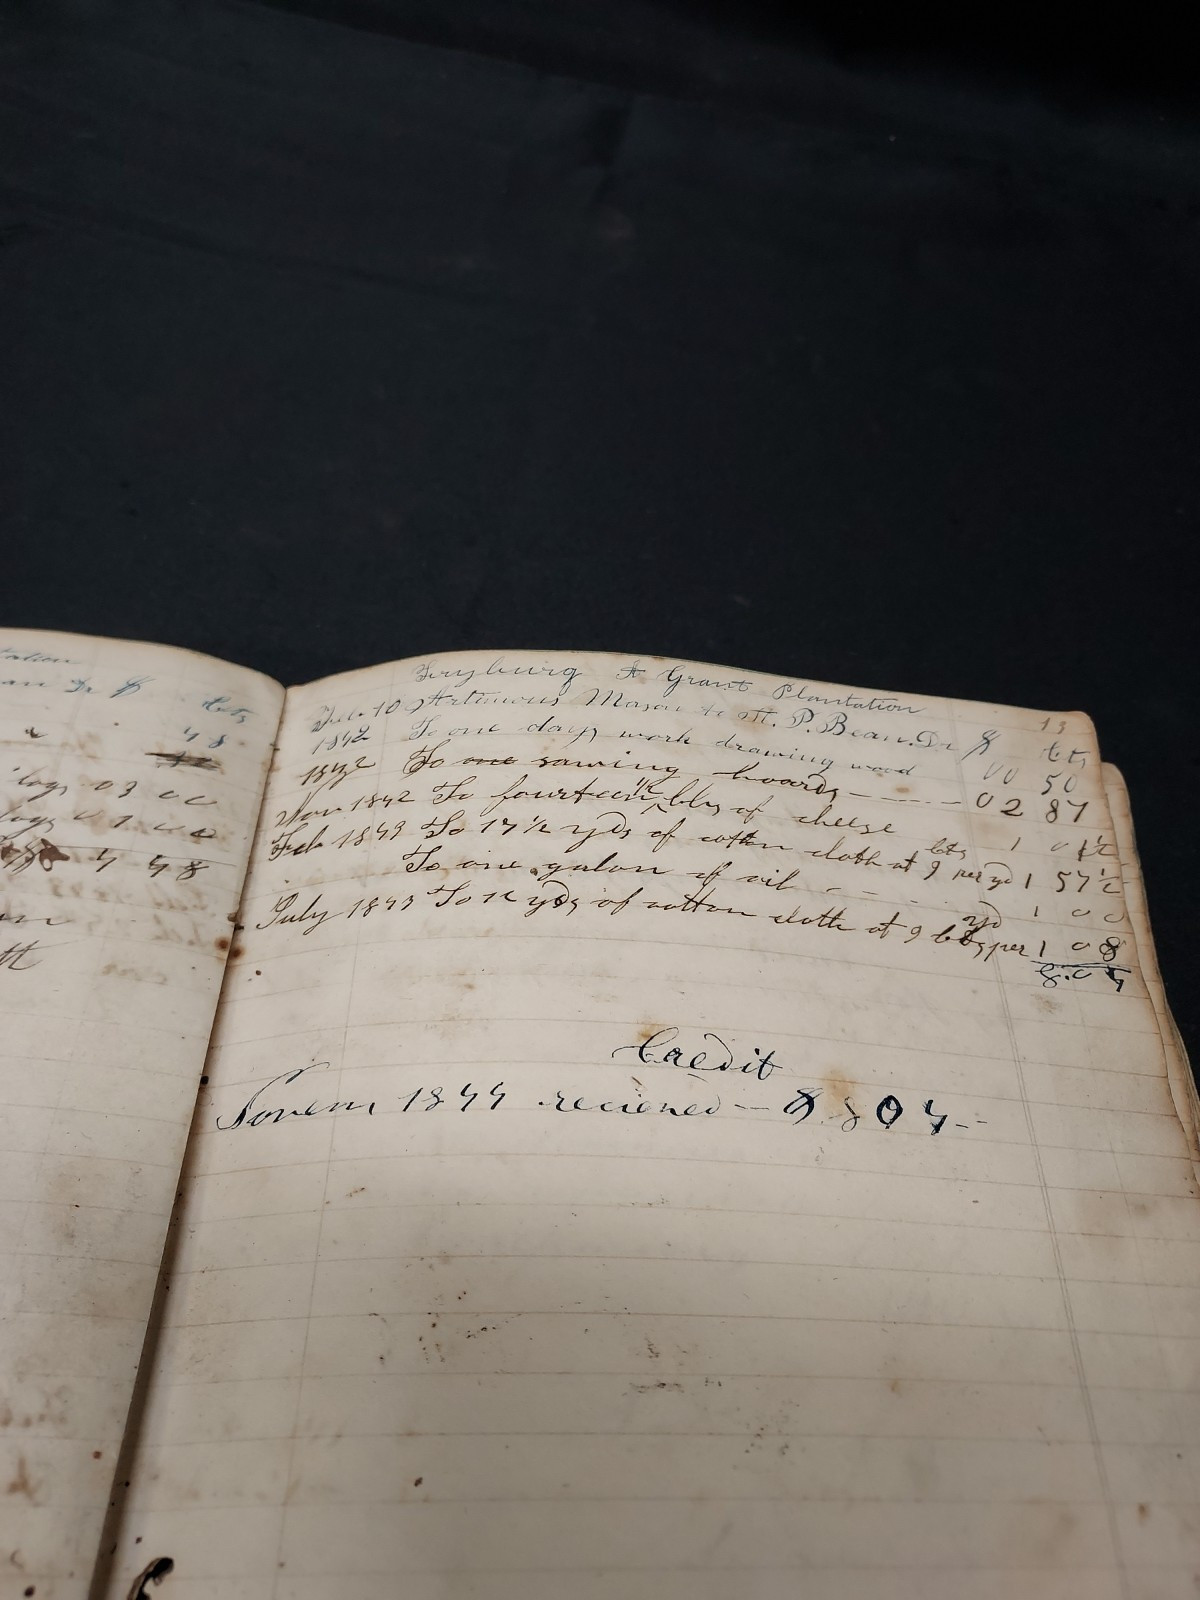 tation
an Dr $ Cts
48
logs 03 00
logs 01 00
4 48
Fryburg A Grant Plantation
13
Feb 10 Artimous Mason to M. P. Bean. Dr $ Cts
1842 To one days work drawing wood 00 50
1842 To one sawing boards ------ 02 87
Nov 1842 To fourteen 1/2 lbs of cheese 1 01 1/2
Feb 1843 To 17 1/2 yds of cotton cloth at 9 cts per yd 1 57 1/2
To one galon of oil - - - 1 00
July 1843 To 12 yds of cotton cloth at 9 cts per yd 1 08
8.04
Credit
Novem 1844 recieved -- $ 8 04--